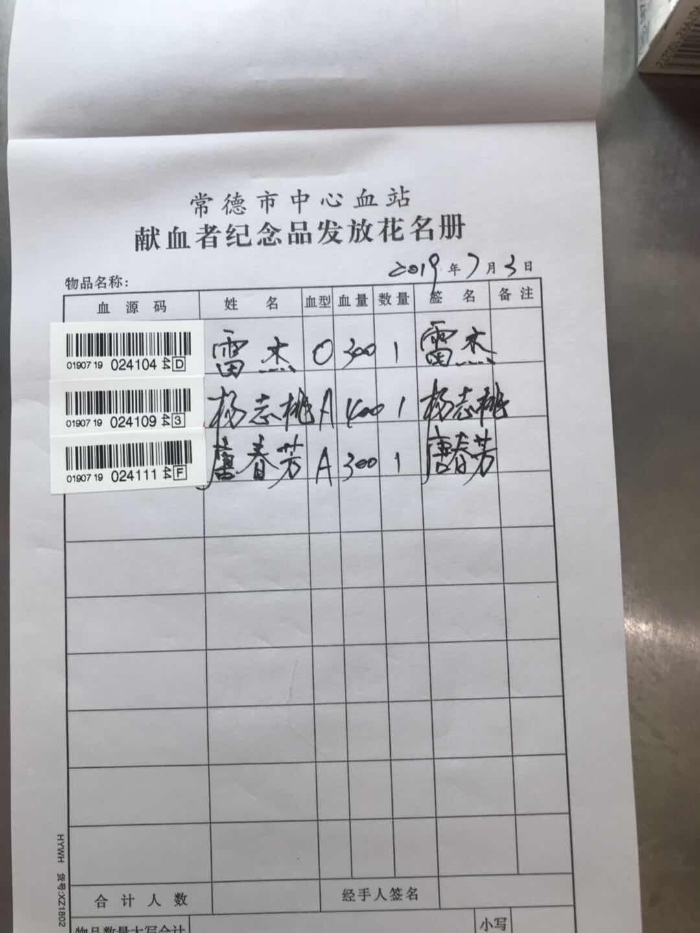 常德市中心血站
献血者纪念品发放花名册
2019年7月3日
物品名称：
血源码 姓名 血型 血量 数量 签名 备注
01907 19 024104 D 雷杰 O 300 1 雷杰
01907 19 024109 3 杨志桃 A 400 1 杨志桃
01907 19 024111 F 唐春芳 A 300 1 唐春芳
合计人数 经手人签名
物品数量大写合计 小写
HYWH 货号:XZ1802